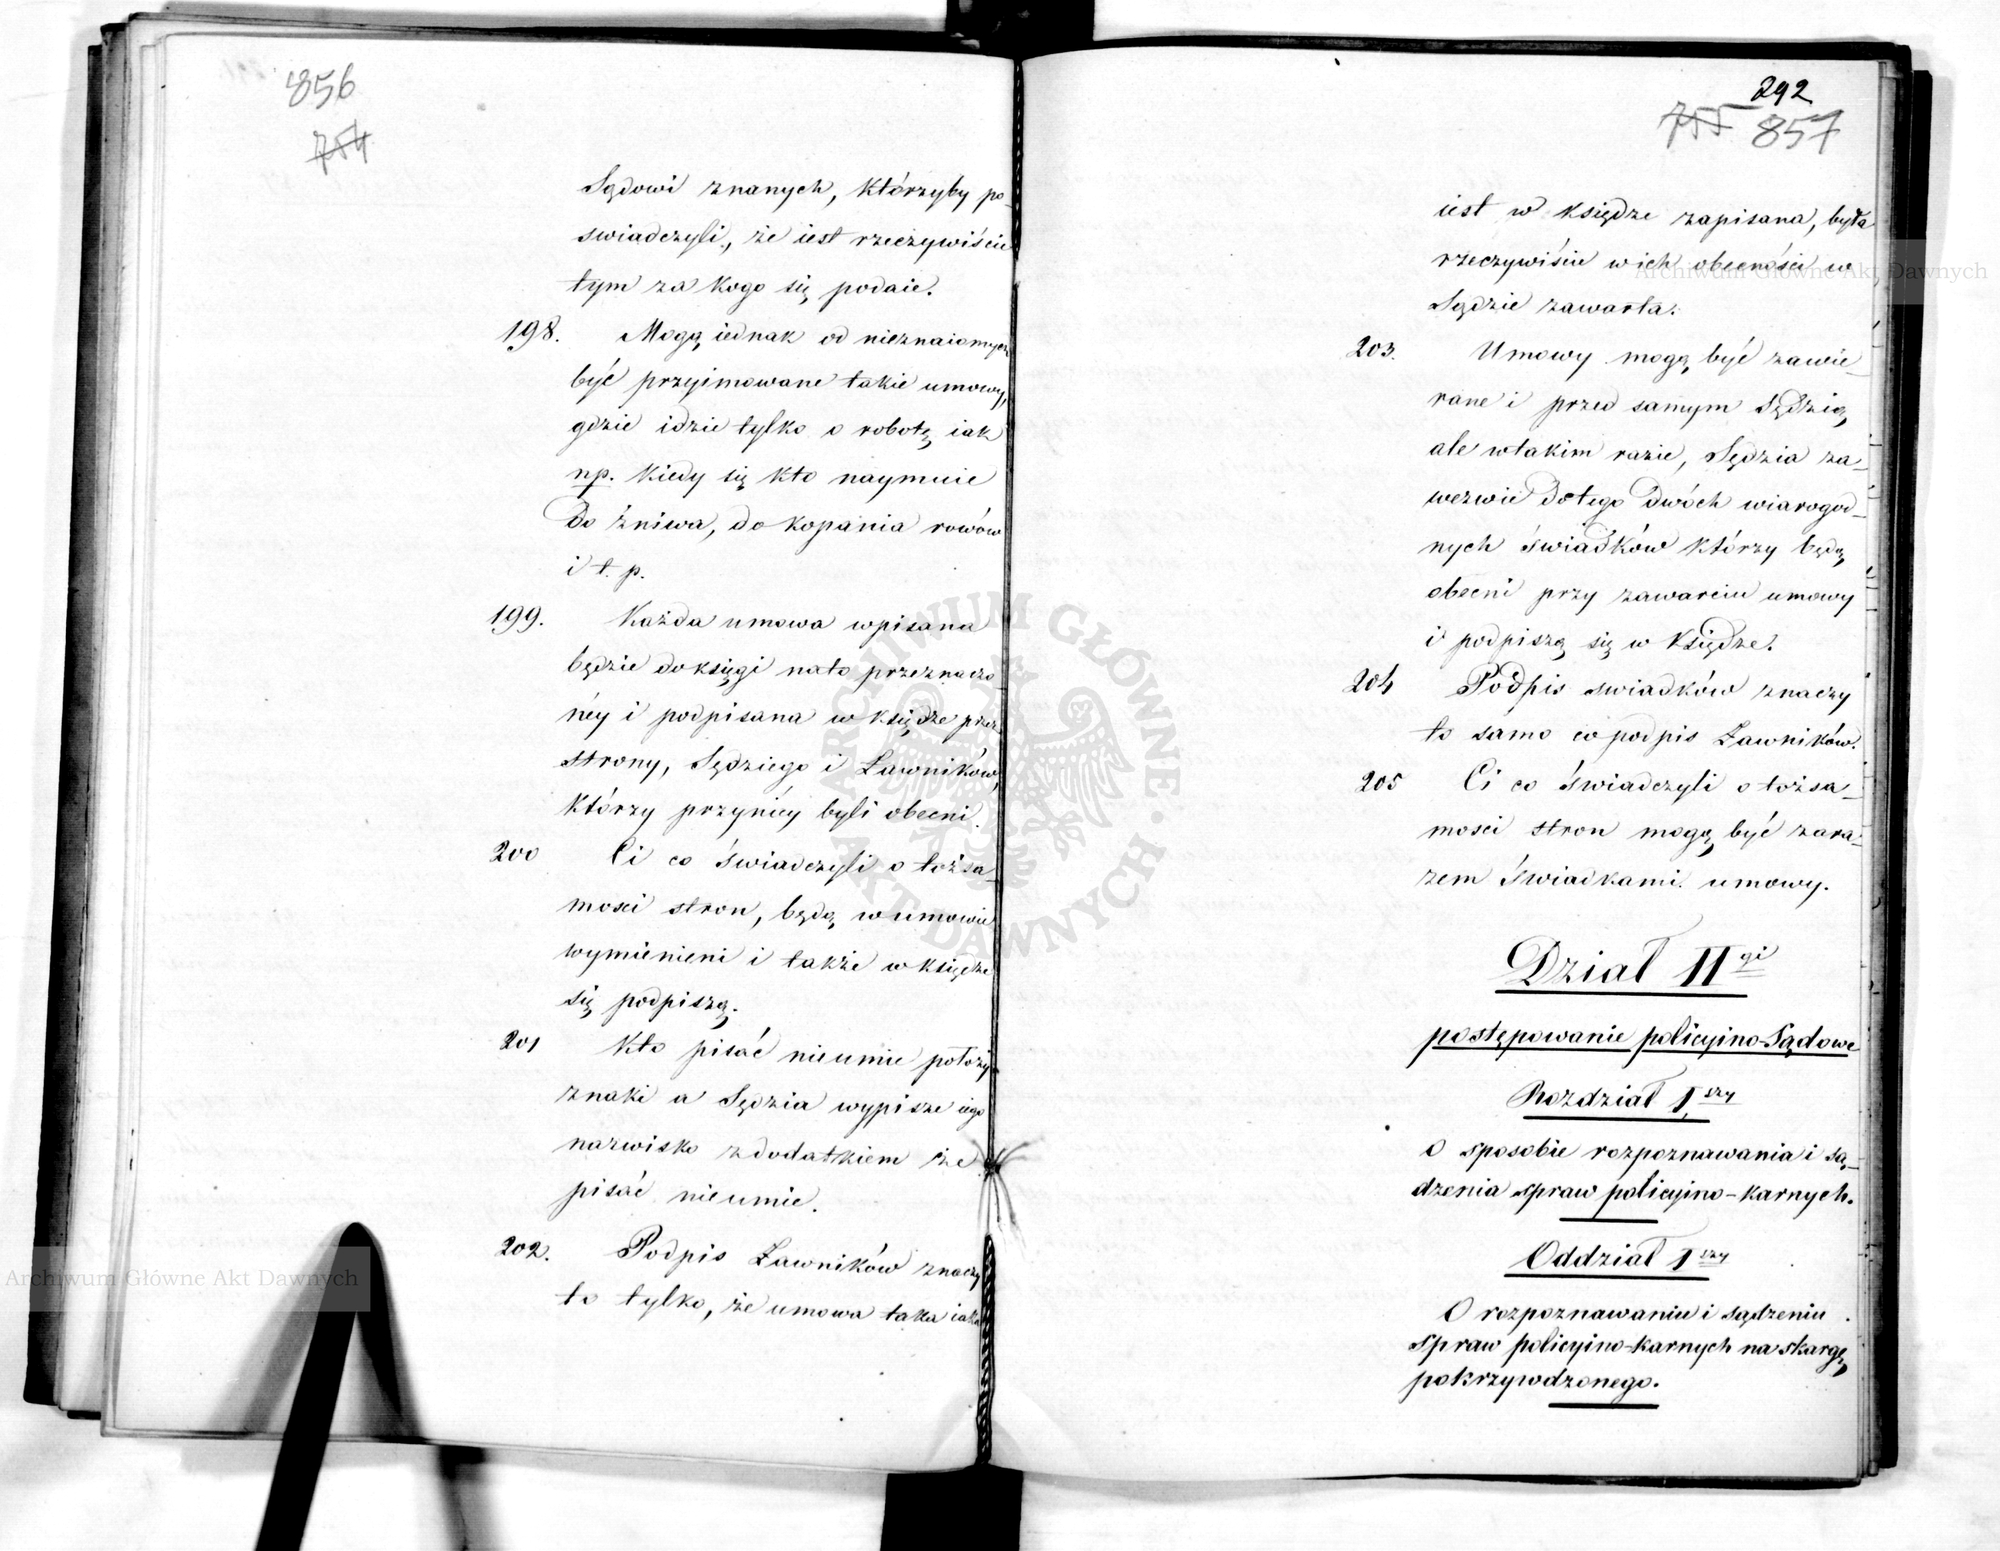 856
754
Sądowi znanych, którzyby po-
swiadczyli, że iest rzeczywiście
tym za kogo się podaie.
198. Mogą iednak od nieznaiomych
być przyimowane takie umowy,
gdzie idzie tylko o robotę iak
np. kiedy się kto naymuie
do żniwa, do kopania rowów
i t. p.
199. Każda umowa wpisana
będzie do księgi na to przeznaczo
néy i podpisana w księdze przez
strony, Sędziego i Ławników,
którzy przy niéy byli obecni.
200 Ci co świadczyli o tożsa-
mosci stron, będą w umowie
wymienieni i także w księdze
się podpiszą.
201 Kto pisać nie umie położy
znaki a Sędzia wypisze iego
nazwisko z dodatkiem że
pisać nie umie.
202. Podpis Ławników znaczy
to tylko, że umowa taka iaka
292
755 857
iest w księdze zapisana, była
rzeczywiście w ich obecności w
Sądzie zawarta.
203. Umowy mogą być zawie-
rane i przed samym Sędzią,
ale w takim razie, Sędzia za-
wezwie do tego dwóch wiarogod-
nych świadków którzy będą
obecni przy zawarciu umowy
i podpiszą się w księdze.
204 Podpis swiadków znaczy
to samo co podpis Ławników.
205 Ci co świadczyli o tożsa-
mosci stron mogą być zara-
zem świadkami umowy.
Dział II gi
postępowanie policyino-Sądowe
Rozdział 1 szy
O sposobie rozpoznawania i są-
dzenia spraw policyino-karnych.
Oddział 1 szy
O rozpoznawaniu i sądzeniu
spraw policyino-karnych na skargę
pokrzywdzonego.
Archiwum Główne Akt Dawnych
ARCHIWUM GŁÓWNE AKT DAWNYCH
Archiwum Główne Akt Dawnych